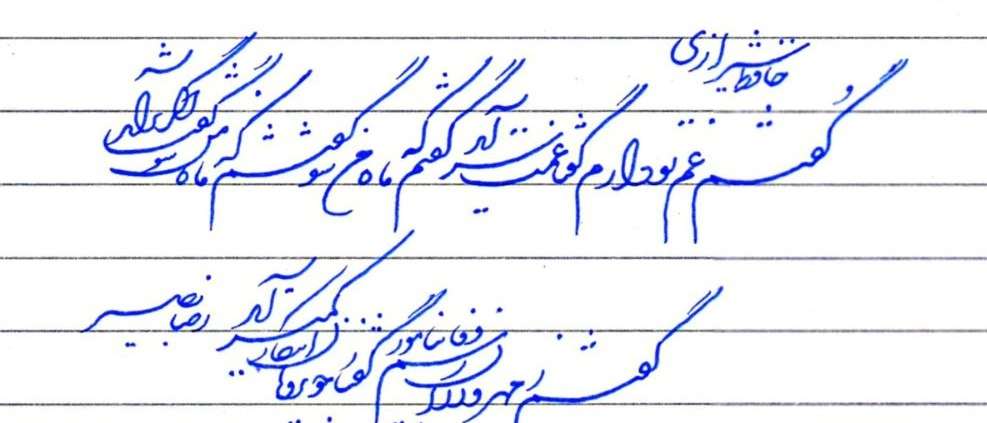 حافظ شیرازی
گفتم غم تو دارم گفتا غمت سر آید گفتم که ماه من شو گفتم که ماه من شو گفتا اگر برآید
گفتم ز مهرورزان رسم وفا بیاموز گفتا ز خوبرویان این کار کمتر آید
رضا نصیر